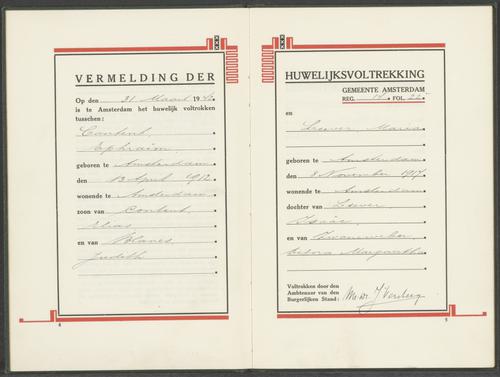 VERMELDING DER
Op den 31 Maart 1942
is te Amsterdam het huwelijk voltrokken
tusschen:
Content
Ephraim
geboren te Amsterdam
den 13 April 1912
wonende te Amsterdam
zoon van Content
Elias
en van Blanes
Judith
4
HUWELIJKSVOLTREKKING
GEMEENTE AMSTERDAM
REG. FOL. 22
en
Leever Maria
geboren te Amsterdam
den 8 November 1917
wonende te Amsterdam
dochter van Leever
Isaäc
en van Zwanenveker
Debora Margaretha
Voltrokken door den
Ambtenaar van den
Burgerlijken Stand:
5